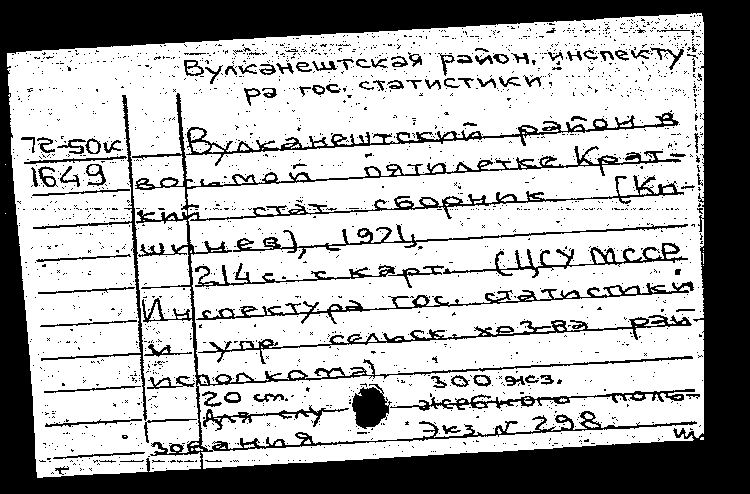 Вулканештская район. инспекту-
ра гос. статистики.
72-50к
1649
Вулканештский район в
восьмой пятилетке. Крат-
кий стат. сборник. [Ки-
шинев], 1971.
214 с. с карт. (ЦСУ МССР
Инспектура гос. статистики
и упр. сельск. хоз-ва рай-
исполкома).
20 см. 300 экз.
Для служебного поль-
зования Экз. № 298.
ш.